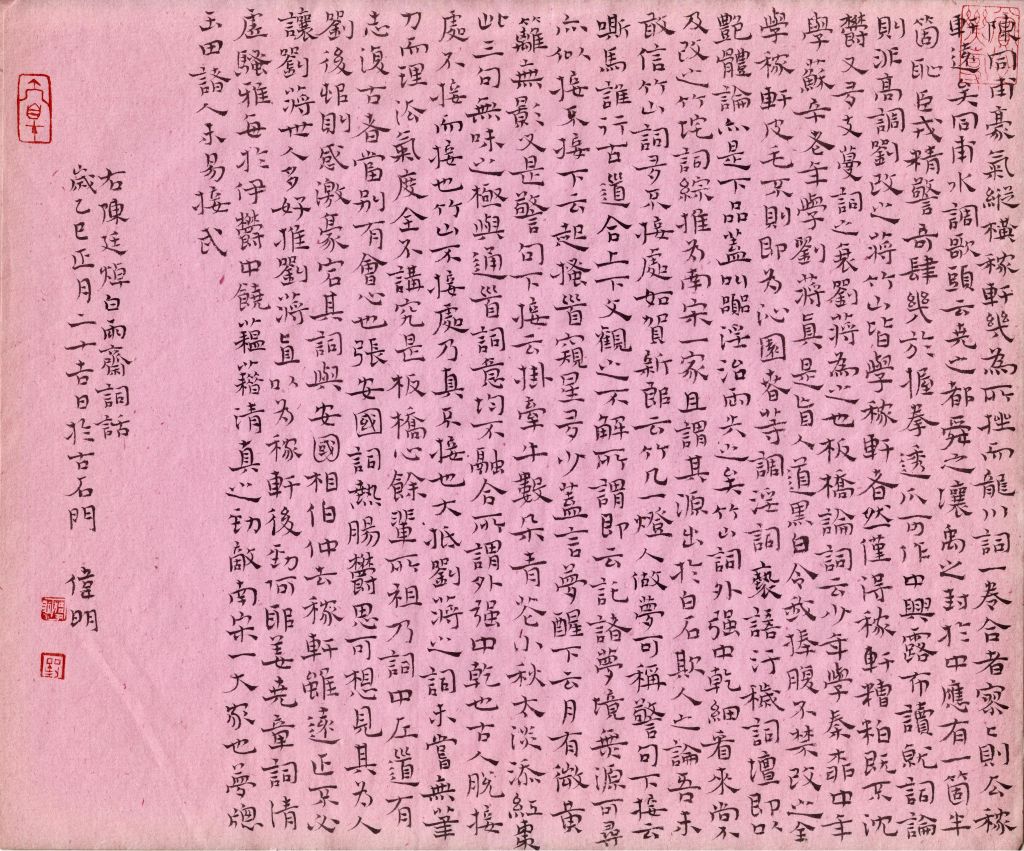 陳同甫豪氣縱橫稼軒幾為所挫而龍川詞一卷合者寥〻則公稼
軒遠矣同甫水調歌頭云堯之都舜之壤禹之封於中應有一箇半
箇恥臣戎精警奇肆幾於握拳透爪可作中興露布讀就詞論
則非高調劉改之蔣竹山皆學稼軒者然僅得稼軒糟粕既不沈
鬱又多支蔓詞之衰劉蔣為之也板橋論詞云少年學秦柳中年
學蘇辛老年學劉蔣真是盲人道黑白令我捧腹不禁改之全
學稼軒皮毛不則即為沁園春等調淫詞褻語汙穢詞壇即以
艷體論亦是下品蓋叫囂浮冶兩失之矣竹山詞外强中乾細看來尚不
及改之竹垞詞綜推為南宋一家且謂其源出於白石欺人之論吾未
敢信竹山詞多不接處如賀新郎云竹几一燈人做夢可稱警句下接云
嘶馬誰行古道合上下文觀之不解所謂即云託諸夢境無源可尋
亦似接不接下云起搔首窺星多少蓋言夢醒下云月有微黃
籬無影又是警句下接云掛牽牛數朵青花小秋太淡添紅棗
此三句無味之極與通首詞意均不融合所謂外强中乾也古人脫接
處不接而接也竹山不接處乃真不接也大抵劉蔣之詞未嘗無筆
力而理法氣度全不講究是板橋心餘輩所祖乃詞中左道有
志復古者當别有會心也張安國詞熱腸鬱思可想見其為人
劉後邨則感激豪宕其詞與安國相伯仲去稼軒雖遠正不必
讓劉蔣世人多好推劉蔣直以為稼軒後勁何耶姜堯章詞清
虛騷雅每於伊鬱中饒蘊藉清真之勁敵南宋一大家也夢窗
玉田諸人未易接武
右陳廷焯白雨齋詞話
歲乙巳正月二十吉日於古石門 偉明